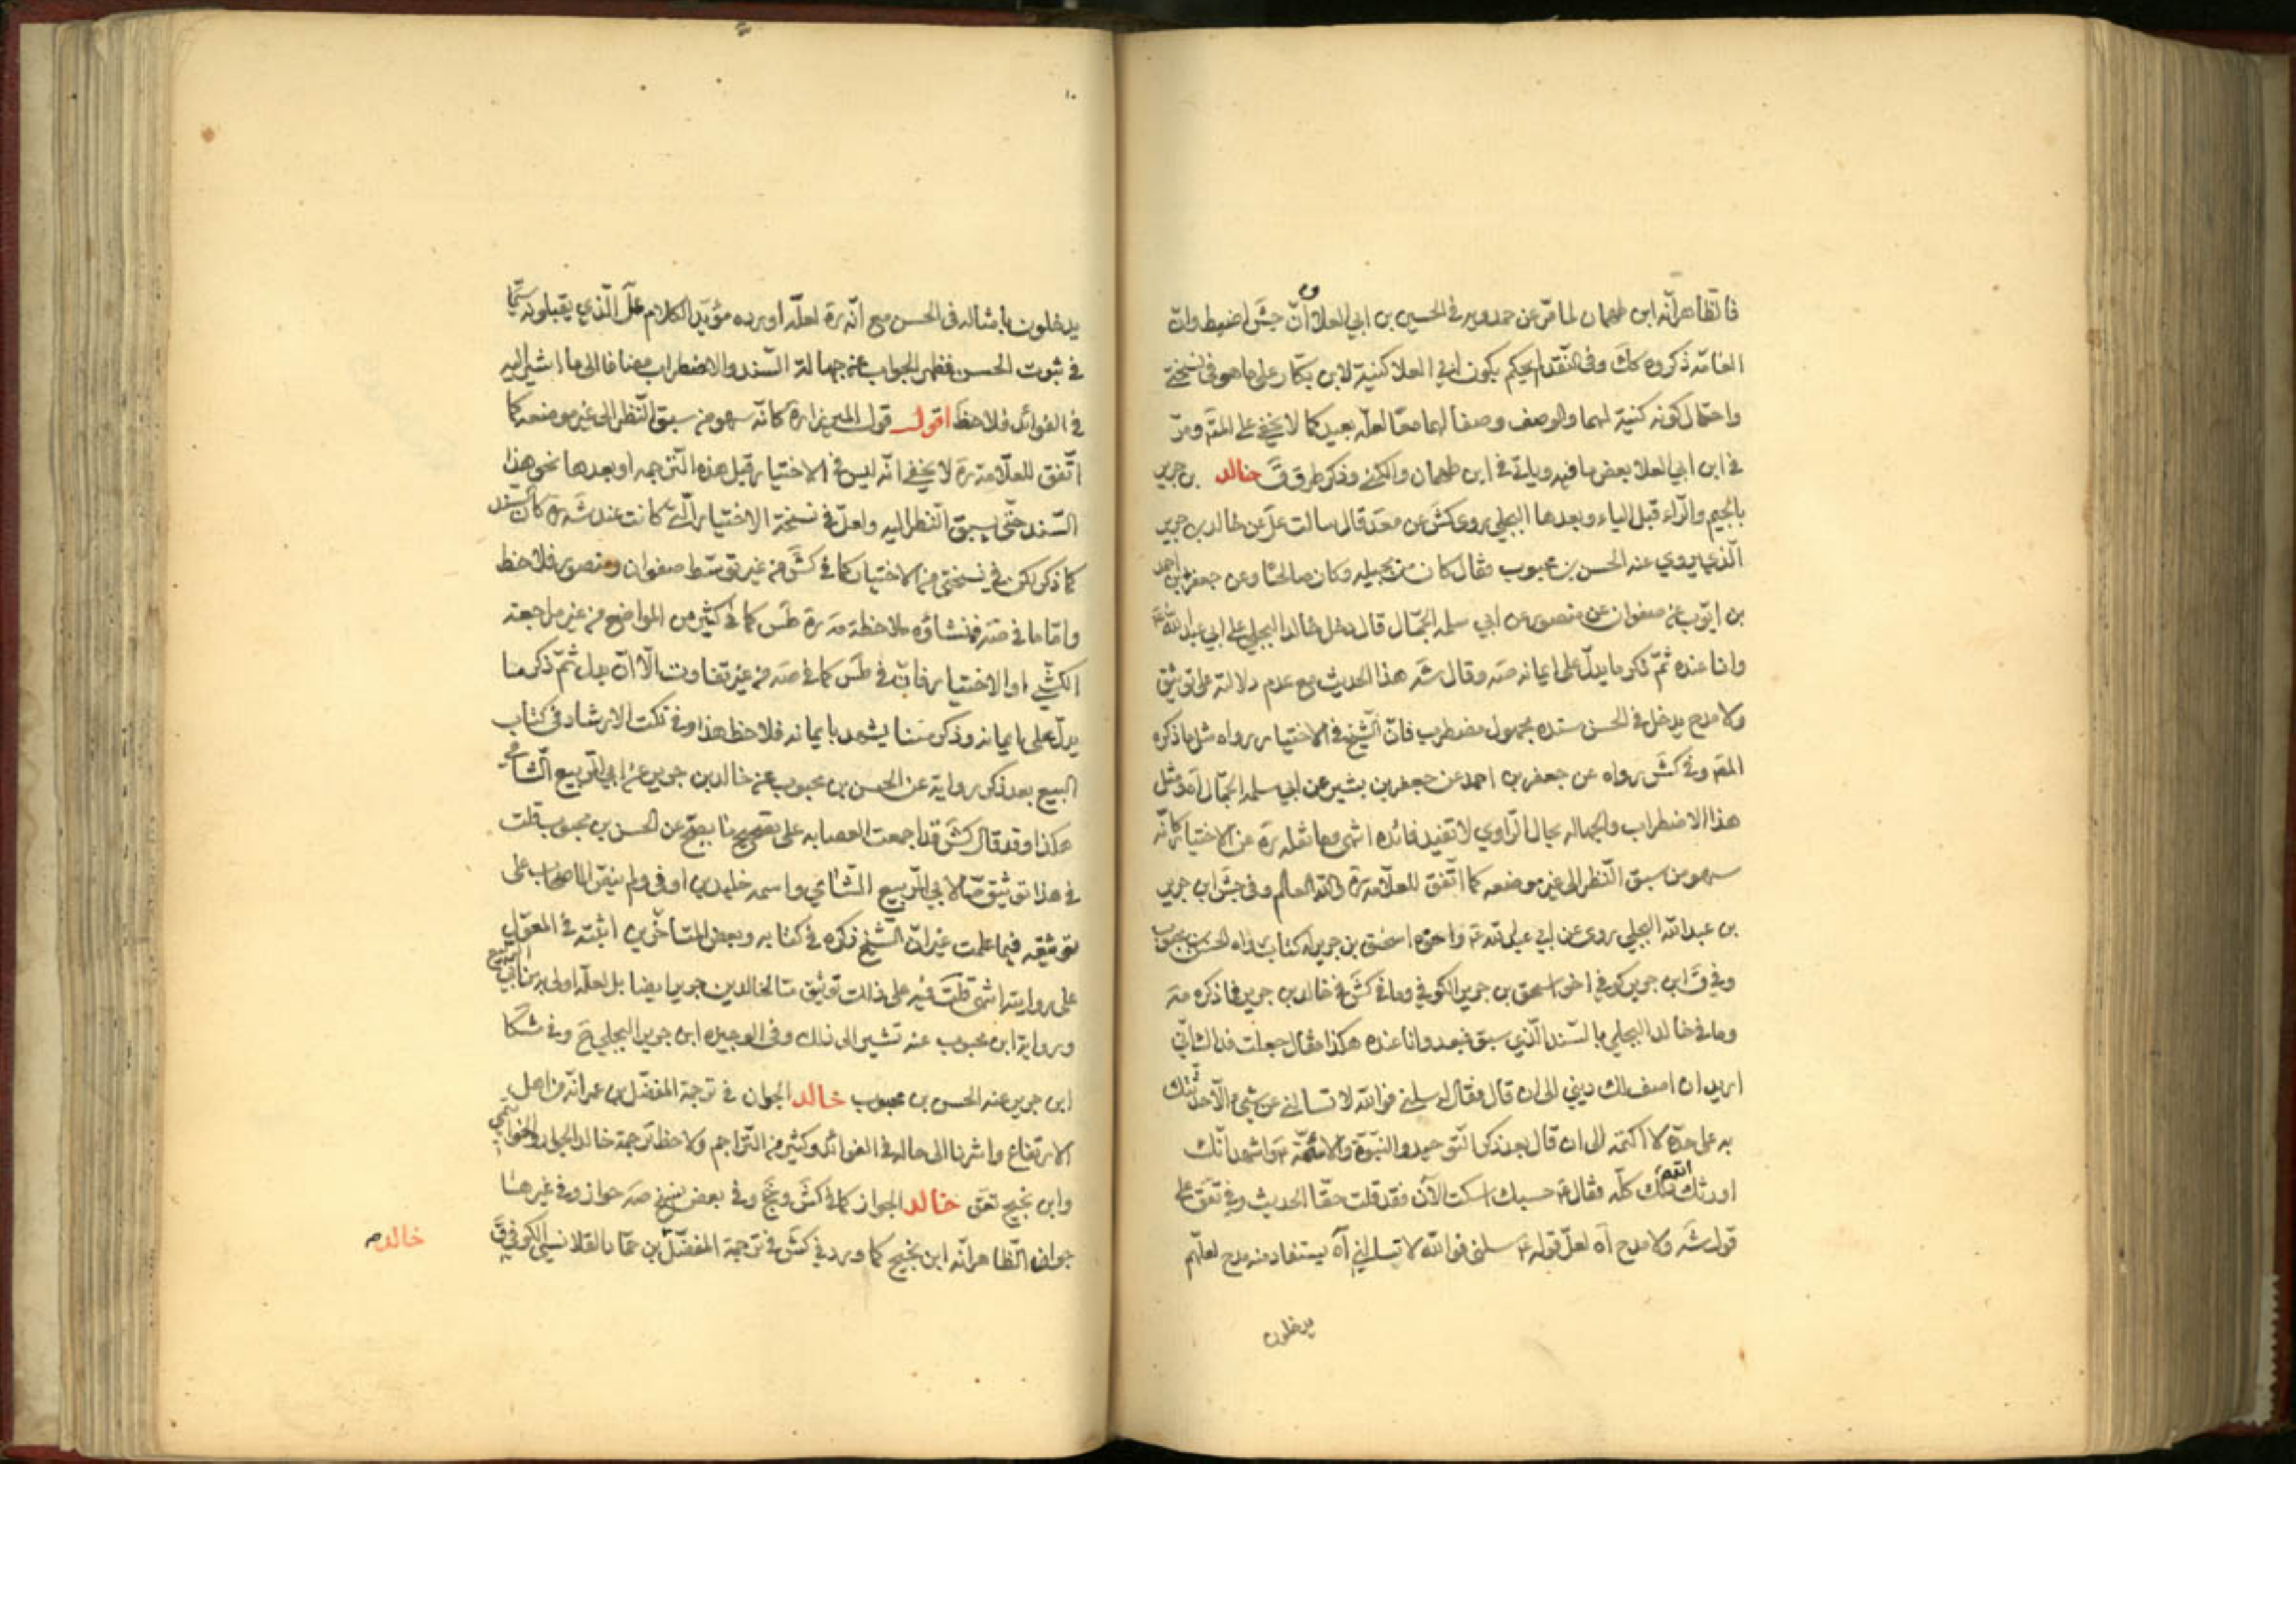 فالظاهر انّه ابن طهمان لما مرّ عن حمدويه في الحسين بن ابي العلا وانّ جش اضبط وانّ
العامّة ذكروه كك وفي النقد الحكم بكون ابي العلا كنية لابن بكّار على ما هو في نسخته
واحتمال كونه كنية لهما والوصف وصفا لهما معا لعلّه بعيد كما لا يخفى على المتـ ومرّ
في ابن ابي العلا بعض ما فيه وياتي في ابن طهمان والكنى وذكر طرق ق خالد بن جرير
بالجيم والرّاء قبل الياء وبعدها البجلي روى كش عن محمد قال سالت علي عن خالد بن جرير
الّذي يروي عنه الحسن بن محبوب فقال كان من بجيله وكان صالحا وعن جعفر بن احمد
بن ايّوب عن صفوان عن منصور عن ابي سلمه الجمّال قال دخل خالد البجلي على ابي عبد الله ع
وانا عنده ثمّ ذكر ما يدلّ على ايمانه صه وقال شه هذا الحديث مع عدم دلالته على توثيق
ولا مدح يدخل في الحسن سنده مجهول مضطرب فانّ الشّيخ في الاختيار رواه مثل ما ذكره
المصـ وفي كش رواه عن جعفر بن احمد عن جعفر بن بشير عن ابي سلمه الجمّال اه ومثل
هذا الاضطراب والجهاله بحال الرّاوي لا تفيد فائده انتهى وما نقله ره عن الاختيار كانّه
سهو من سبق النّظر الى غير موضعه كما اتّفق للعلّامه ره والله العالم وفي جش ابن جرير
بن عبد الله البجلي روى عن ابي عبد الله ع واخوه اسحق بن جرير له كتاب رواه الحسن بن محبوب
وفي ق ابن جرير كوفي اخو اسحق بن جرير الكوفي وما في كش في خالد بن جرير فما ذكره صه
وما في خالد البجلي بالسّند الّذي سبق فبعد وانا عنده هكذا فقال جعلت فداك انّي
اريد ان اصف لك ديني الى ان قال فقال له سلني فوالله لا تسالني عن شيء الّا حدّثتك
به على حدّه لا اكتمه الى ان قال بعد ذكر التّوحيد والنّبوّة والائمّة ع واشهد انّك
اورثك الله ذلك كلّه فقال ع حسبك اسكت الآن فقد قلت حقّا الحديث وفي تعق على
قول شه ولا مدح اه لعلّ قوله ع سلني فوالله لا تسالني اه يستفاد منه مدح لعلّهم
يدخلون
يدخلون بامثاله في الحسن مع انّه ره لعلّه اورده مؤيّدا لكلام علي الّذي يقبلونه سيّما
في ثبوت الحسن فظهر الجواب عن جهالة السّند والاضطراب مضافا الى ما اشير اليه
في الفوائد فلاحظ اقول قول الميرزا ره كانّه سهو من سبق النّظر الى غير موضعه كما
اتّفق للعلّامة ره لا يخفى انّه ليس في الاختيار قبل هذه التّرجمه او بعدها نحو هذا
السّند حتّى يسبق النّظر اليه ولعلّ في نسخة الاختيار الّتي كانت عند شه ره كان السّند
كما ذكر لكن في نسختي من الاختيار كما في كش من غير توسّط صفوان ومنصور فلاحظ
وامّا ما في صه فمنشاؤه ملاحظة مه ره طس كما في كثير من المواضع من غير مراجعة
الكشّي او الاختيار فانّ في طس كما في صه من غير تفاوت الّا انّ بدل ثمّ ذكر ما
يدلّ على ايمانه وذكر متنا يشهد بايمانه فلاحظ هذا وفي نكت الارشاد في كتاب
البيع بعد ذكر رواية عن الحسن بن محبوب عن خالد بن جرير عن ابي الرّبيع الشّامي
هكذا وقد قال كش قد اجمعت العصابه على تصحيح ما يصحّ عن الحسن بن محبوب قلت
في هذا توثيق مّا لابي الرّبيع الشّامي واسمه خليد بن اوفى ولم ينصّ الاصحاب على
توثيقه فيما علمت غير انّ الشّيخ ذكره في كتابه وبعض المتأخّرين اثبته في المعوّل
على روايته انتهى قلت فيه على ذلك توثيق مّا لخالد بن جرير ايضا بل لعلّه اولى به من ابي الرّبيع
ورواية ابن محبوب عنه تشير الى ذلك وفي الوجيزه ابن جرير البجلي ح وفي مشكا
ابن جرير عنه الحسن بن محبوب خالد الجوان في ترجمة المفضّل بن عمر انّه من اهل
الارتفاع واشرنا الى حاله في الفوائد وكثير من التّراجم ولاحظ ترجمة خالد الجواز والخواتيمي
وابن نجيح تعق خالد الجواز كما في كش ونج وفي بعض نسخ صه حواز وفي غيرها
جوان الظّاهر انّه ابن نجيح كما ورد في كش في ترجمة المفضّل بن عمر خالد القلانسي الكوفي ق
خالد